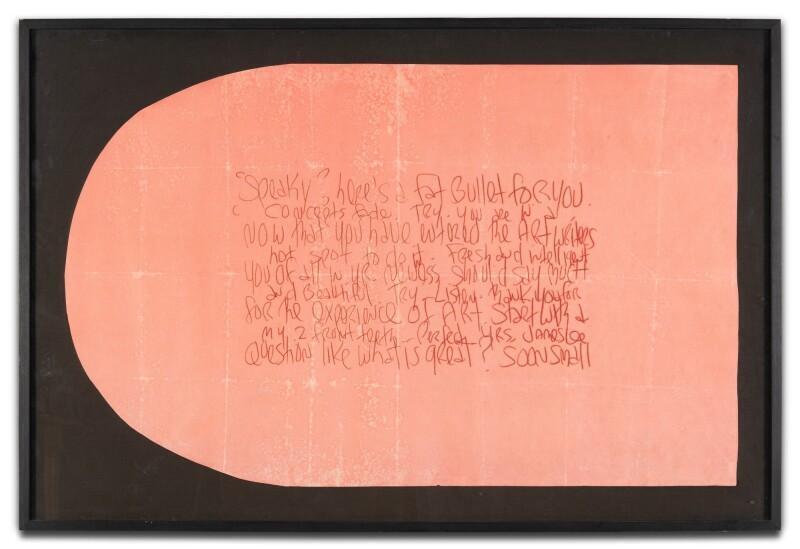 "Speaky", here's a fat Bullet for you.
Concepts fade. Try. you see
now that you have the Art writers
hot spot to do it. Fresh and well kept
you of all should say
and Beautiful. Try. Listen. thank you for
for the experience of Art. Start with a
my 2 front teeth - Perfect - yrs. James Lee
Question like what is great? Soon small